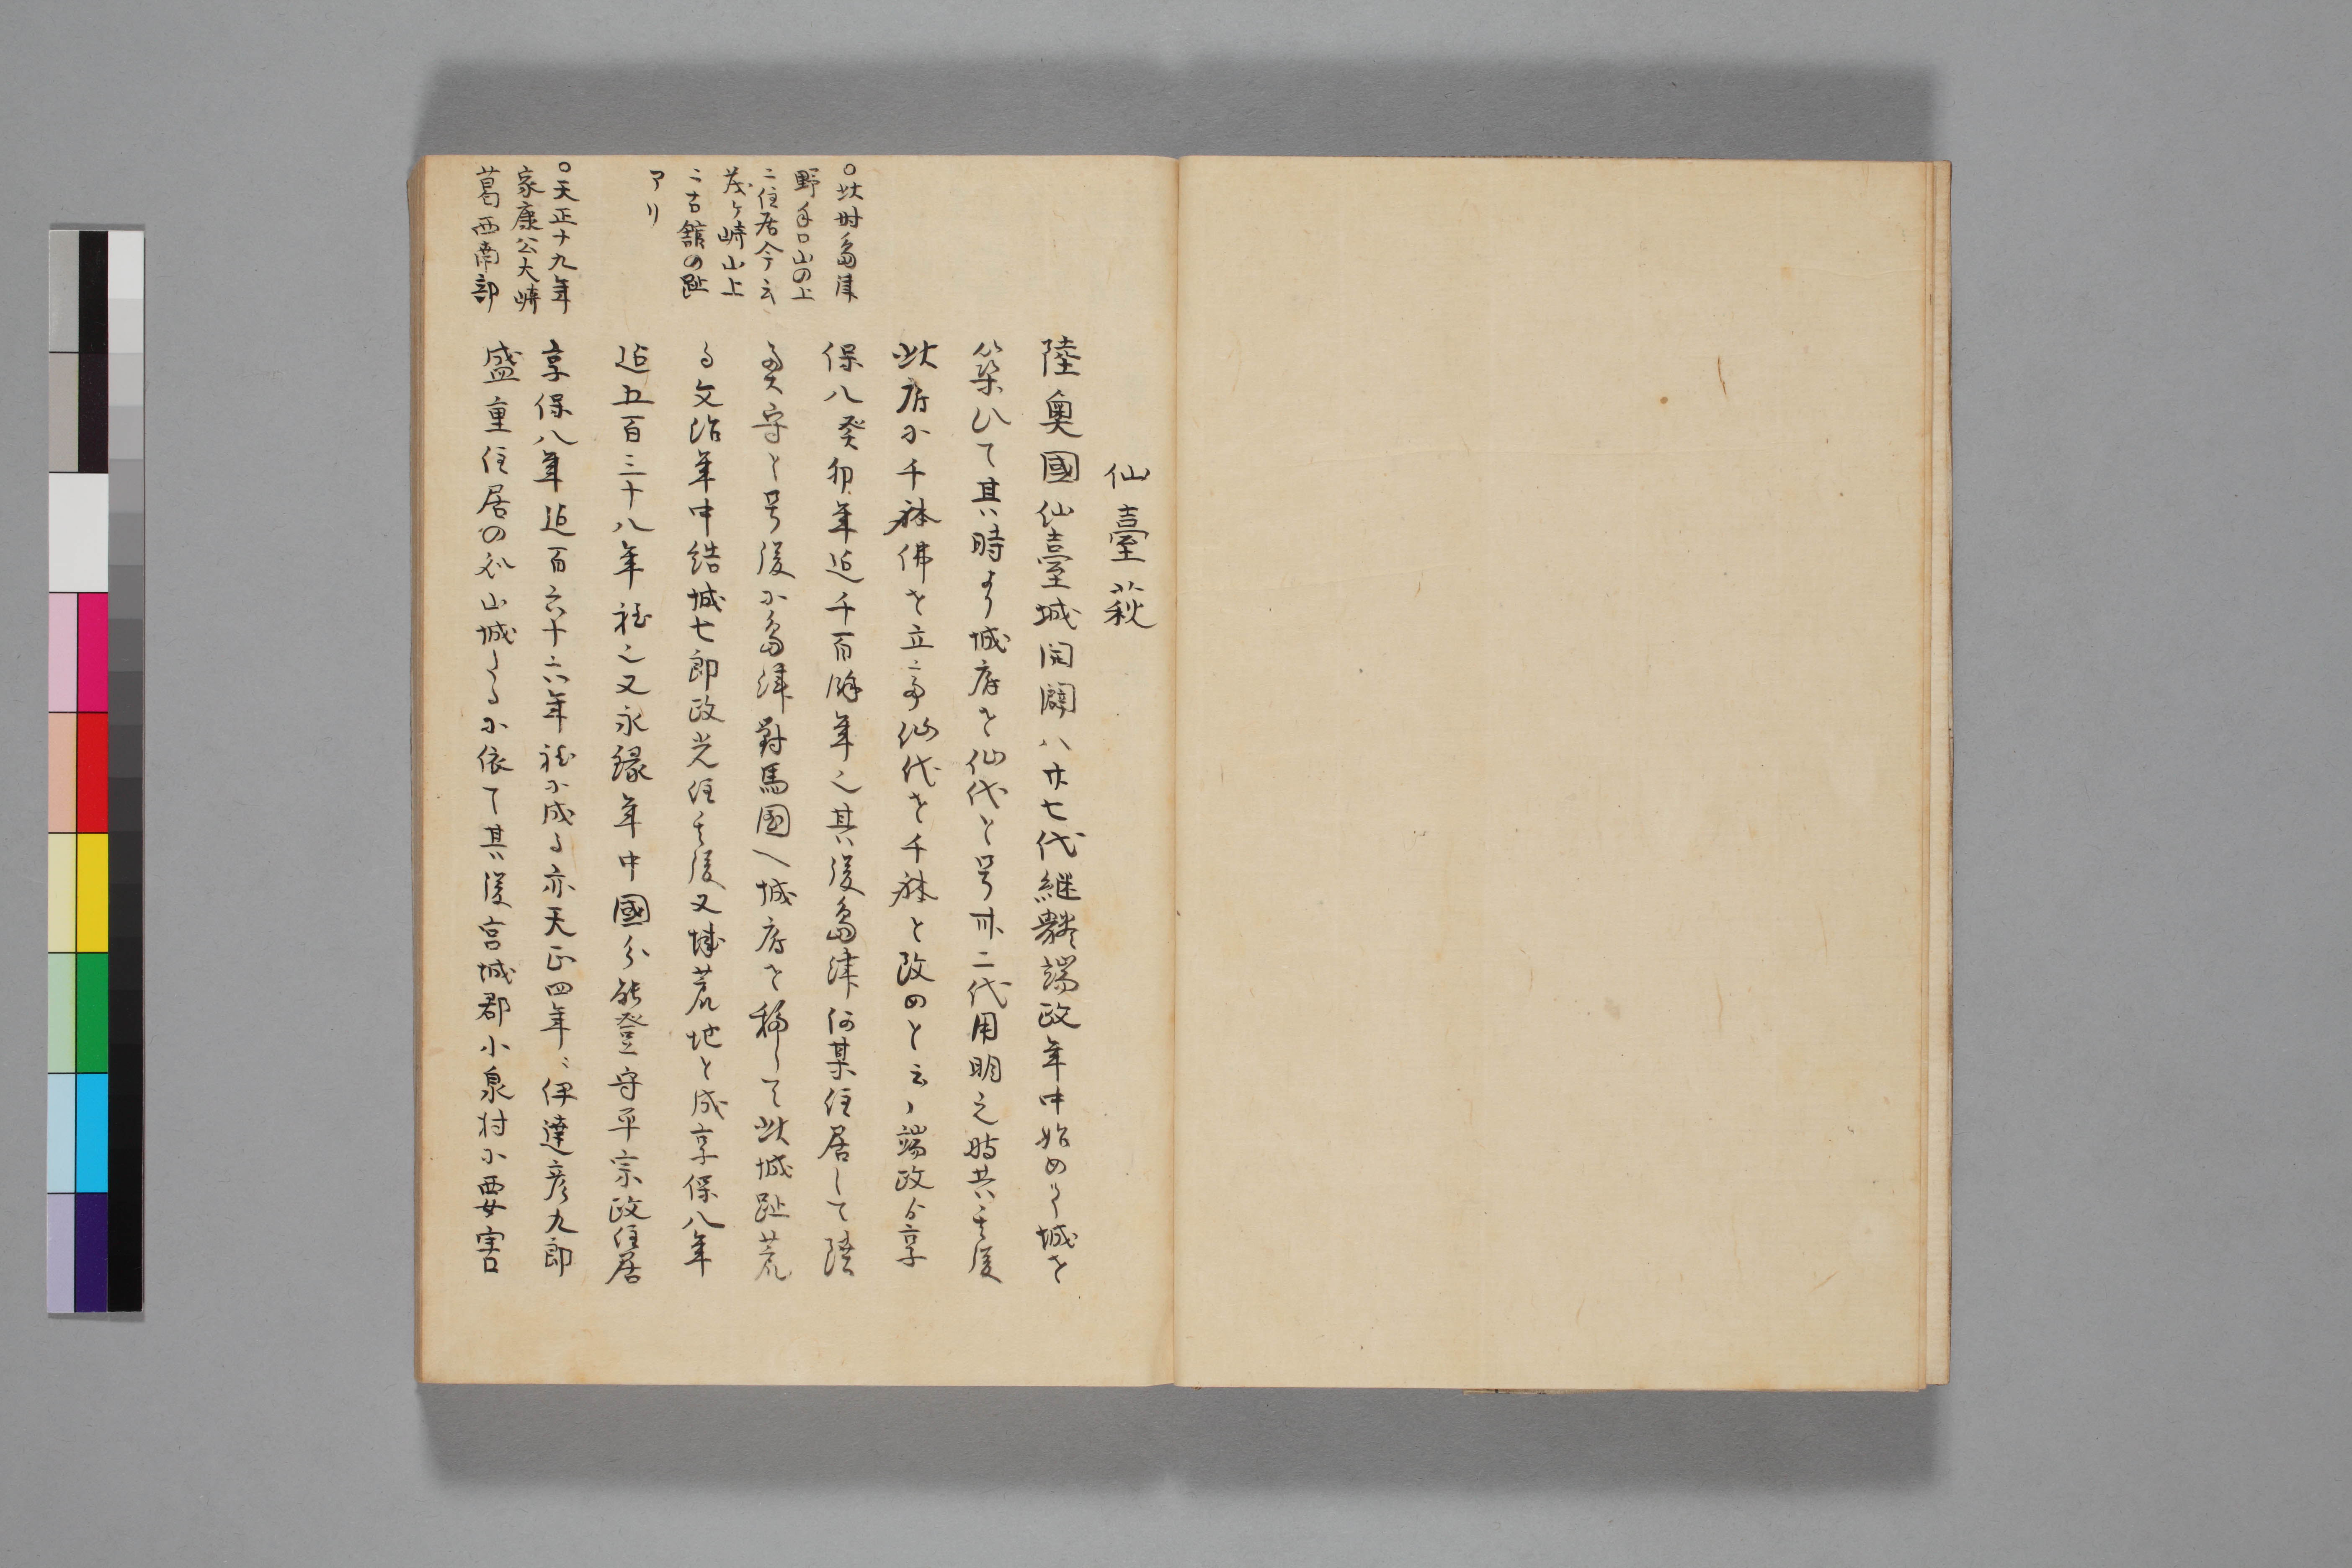 仙臺萩
陸奥國仙臺城開闢ハ廿七代継體端政年中始めて城を
築ひて其時より城府を仙代と号卅二代用明之時其後
此府に千躰佛を立奉仙代を千躰と改めと云々端政より享
保八癸卯年迠千百餘年之其後島津何某住居して陸
奥守と号後に島津對馬国へ城府を移して此城趾荒
る文治年中結城七郎政光住其後又城荒地と成享保八年
迠五百三十八年程之又永縁年中國分能登守平宗政住居
享保八年迠百六十六年程に成る亦天正四年ニ伊達彦九郎
盛重住居の処山城たるに依て其後宮城郡小泉村に要害
○此時島津
野手口山の上
ニ住居今云
茂ケ崎山上
ニ古舘の趾
アリ
○天正十九年
家康公大崎
葛西南部